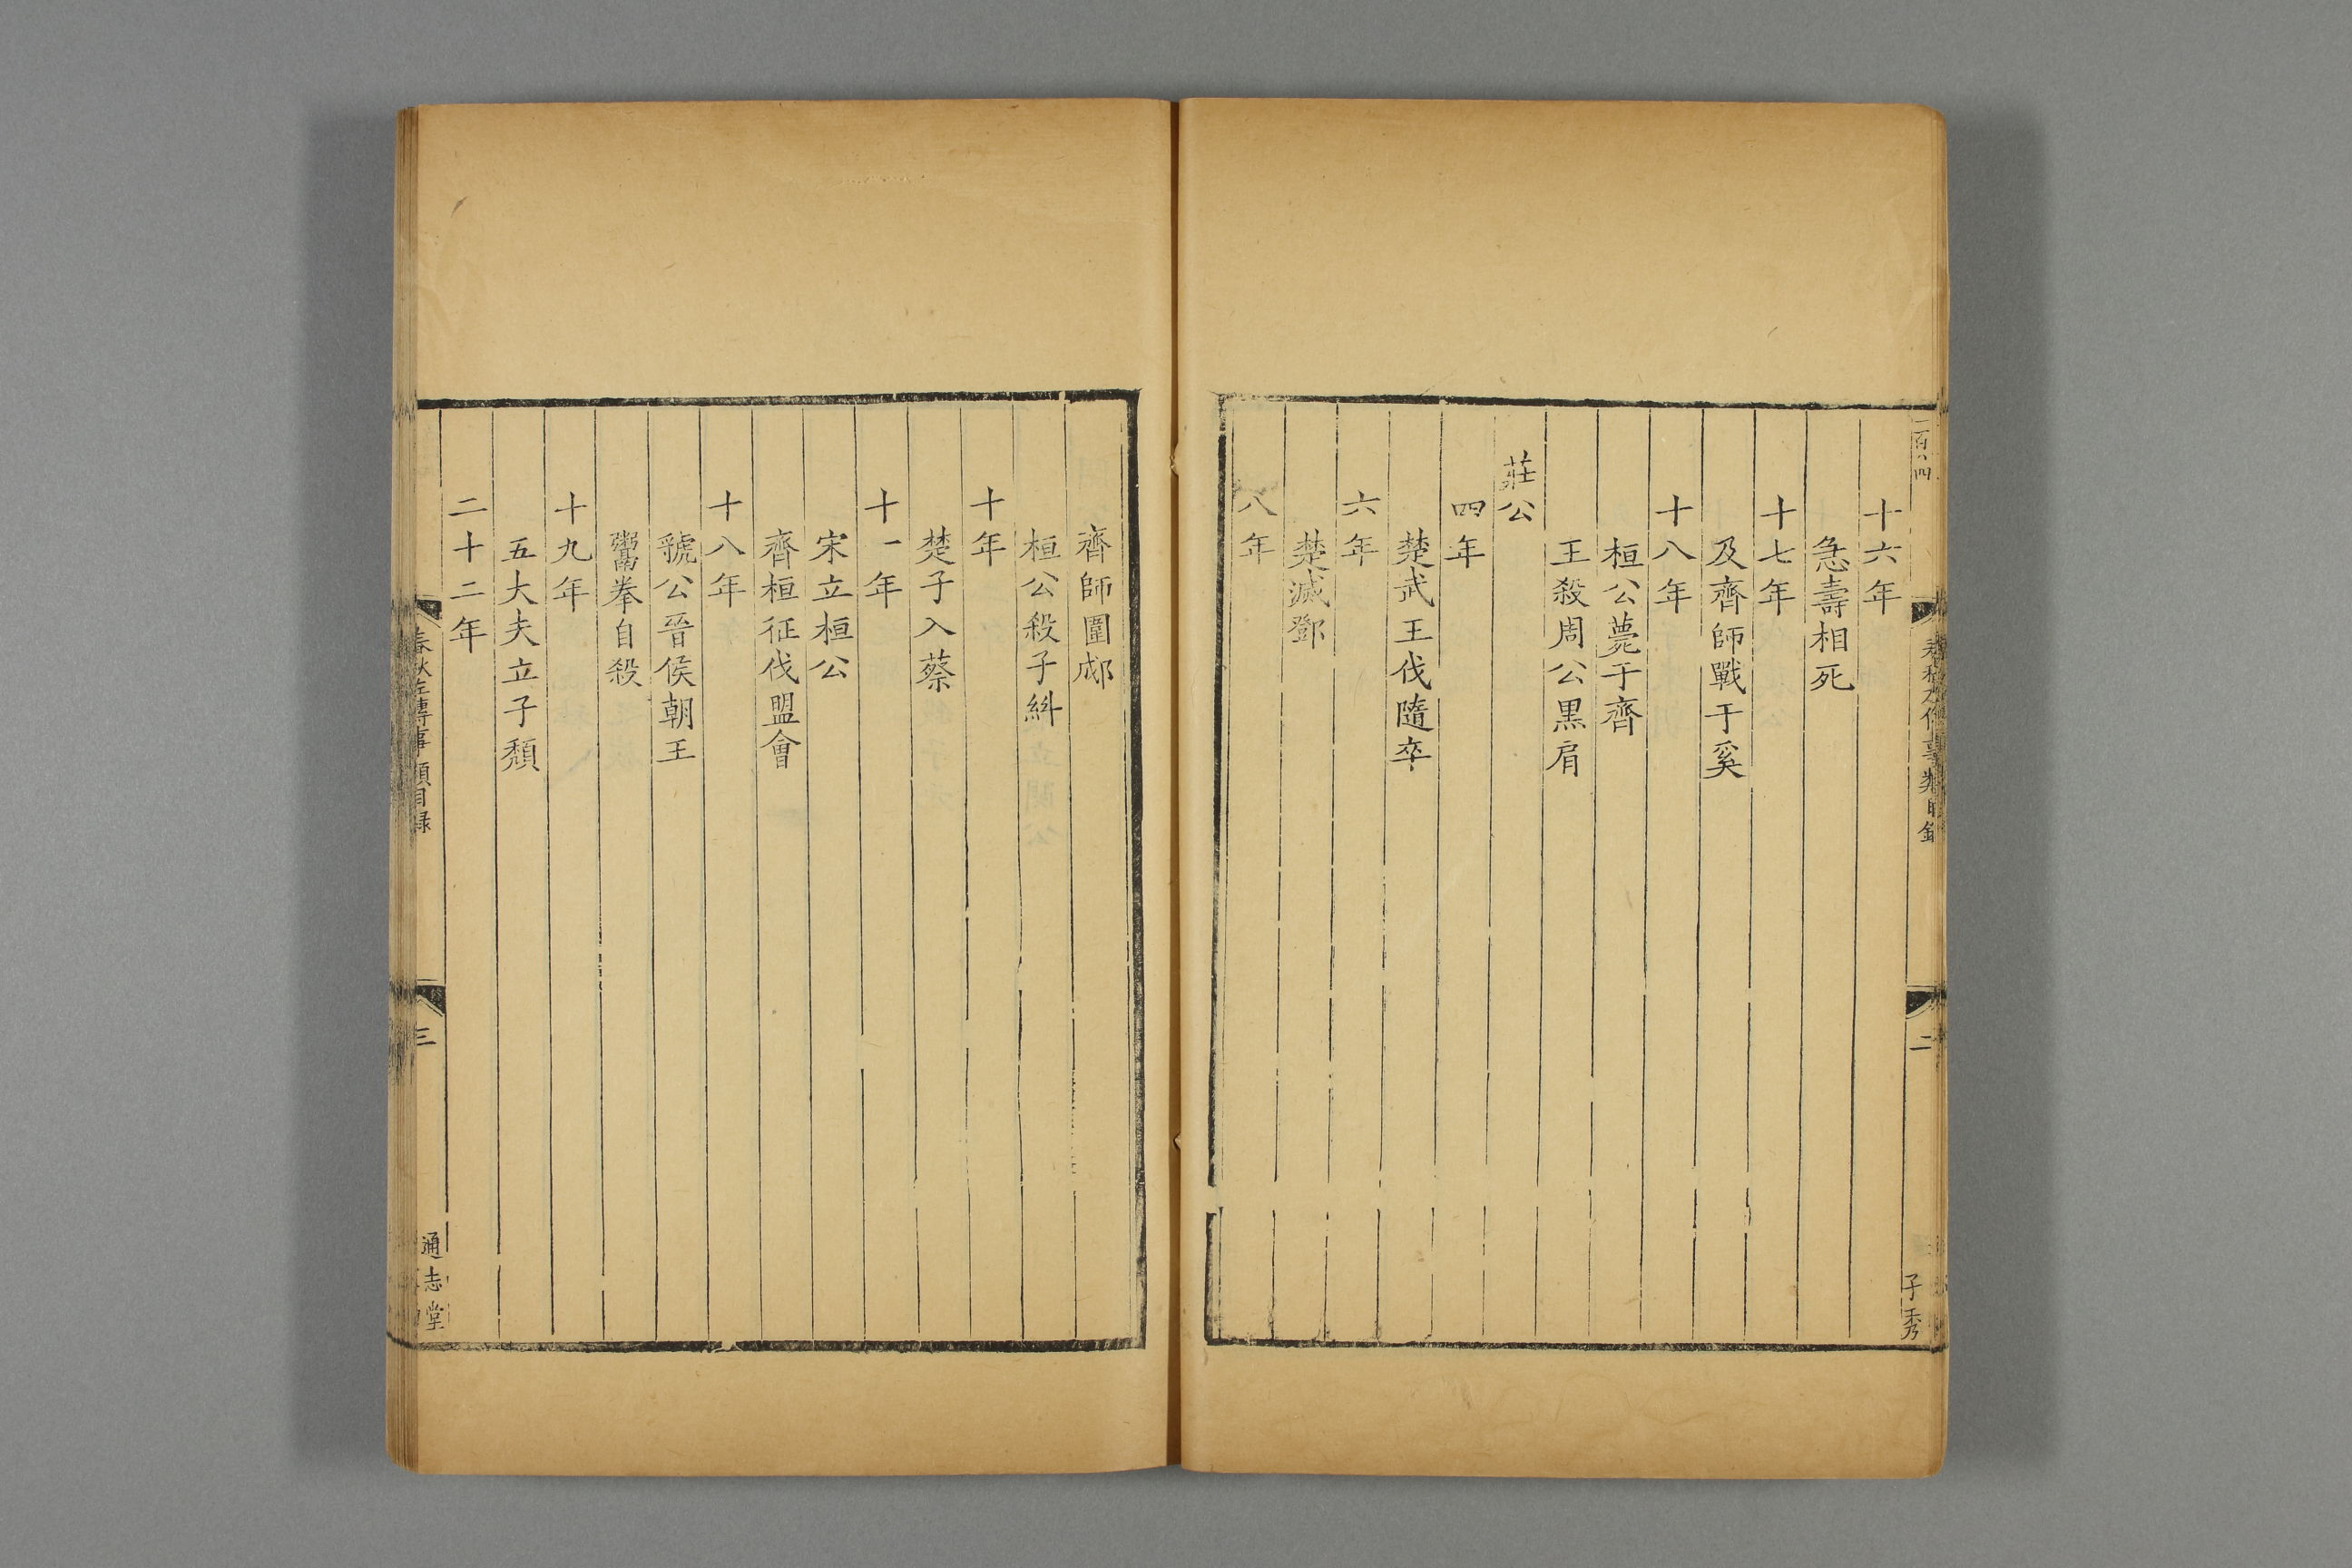 十六年
急壽相死
十七年
及齊師戰于奚
十八年
桓公薨于齊
王殺周公黒肩
莊公
四年
楚武王伐隨卒
六年
楚滅鄧
八年
二
子秀
齊師圍郕
桓公殺子糾
十年
楚子入蔡
十一年
宋立桓公
齊桓征伐盟會
十八年
虢公晉侯朝王
鬻拳自殺
十九年
五大夫立子頹
二十二年
春秋左傳事類目録
三
通志堂